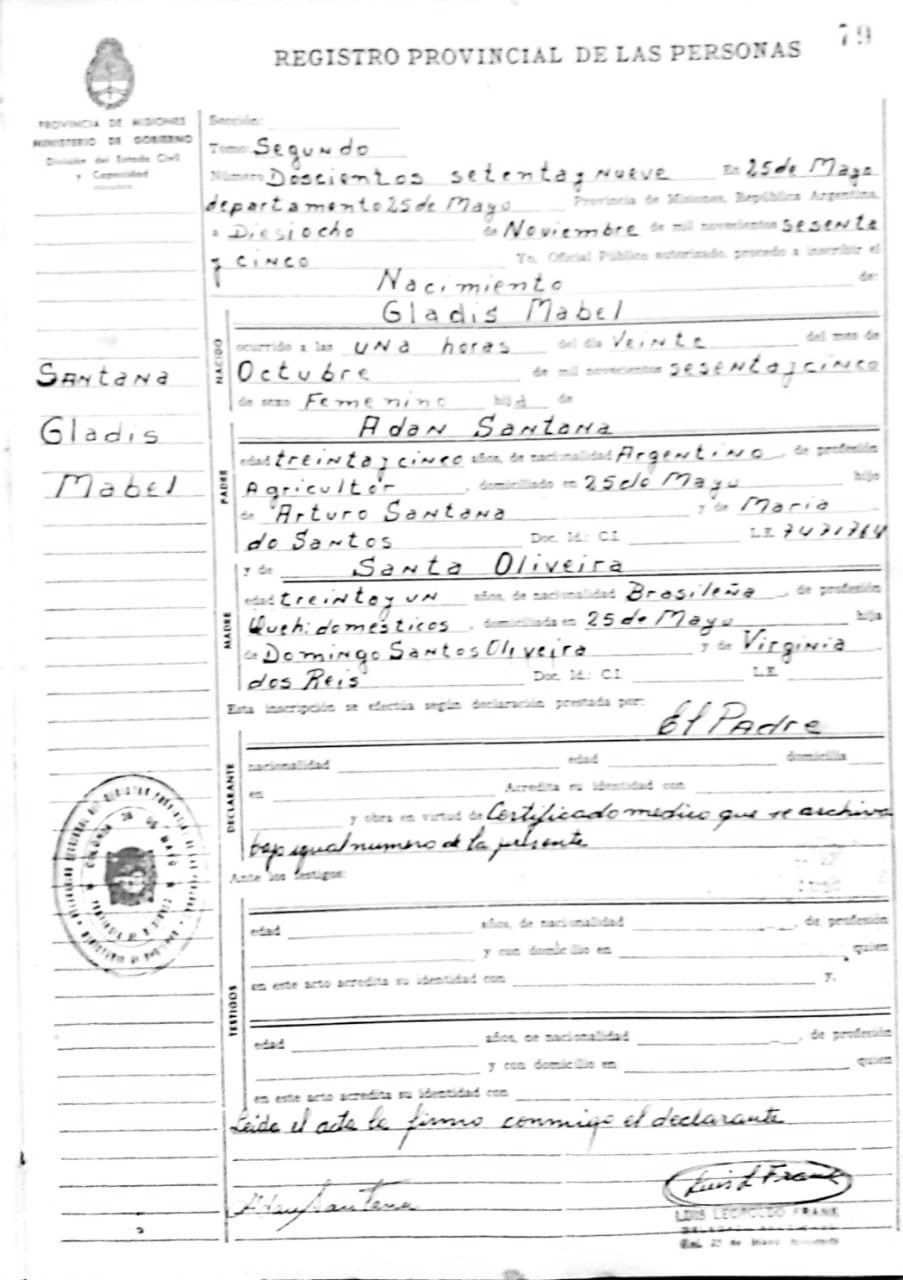 79
REGISTRO PROVINCIAL DE LAS PERSONAS
PROVINCIA DE MISIONES
MINISTERIO DE GOBIERNO
División del Estado Civil
y Capacidad
Santana
Gladis
Mabel
Sección:
Tomo: Segundo
Número Doscientos setenta y nueve En 25 de Mayo
departamento 25 de Mayo Provincia de Misiones, República Argentina,
a Diesiocho de Noviembre de mil novecientos sesenta
y cinco Yo, Oficial Público autorizado, procedo a inscribir el
Nacimiento de:
Gladis Mabel
NACIDO
ocurrido a las una horas del día Veinte del mes de
Octubre de mil novecientos sesenta y cinco
de sexo Femenino hija de
Adan Santana
PADRE
edad treinta y cinco años, de nacionalidad Argentino, de profesión
Agricultor, domiciliado en 25 de Mayo hijo
de Arturo Santana y de Maria
do Santos Doc. Id.: C.I. L.E. 7471764
y de Santa Oliveira
MADRE
edad treinta y un años, de nacionalidad Brasileña, de profesión
Queh: domesticos, domiciliada en 25 de Mayo hija
de Domingo Santos Oliveira y de Virginia
dos Reis Doc. Id.: C.I. L.E.
Esta inscripción se efectúa según declaración prestada por:
El Padre
DECLARANTE
nacionalidad edad domicilia
en Acredita su identidad con
y obra en virtud de Certificado medico que se archiva
bajo igual numero de la presente
Ante los testigos:
TESTIGOS
edad años, de nacionalidad, de profesión
y con domicilio en quien
en este acto acredita su identidad con y,
edad años, de nacionalidad, de profesión
y con domicilio en quien
en este acto acredita su identidad con
Leida el acta la firmo conmigo el declarante
Adan Santana
Luis L Frank
LUIS LEOPOLDO FRANK
COLONIA 25 DE MAYO